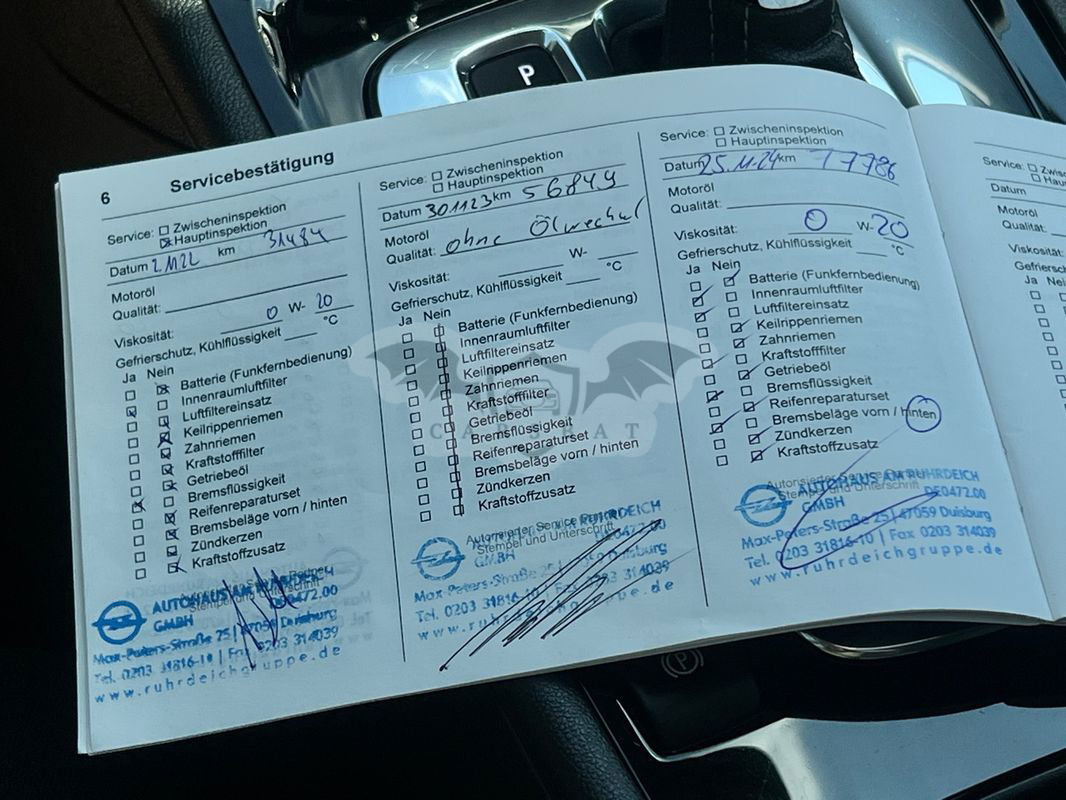 P
6
Servicebestätigung
Service: Zwischeninspektion
Hauptinspektion
Datum 2.11.22 km 31484
Motoröl
Qualität:
Viskosität: 0 W- 20
Gefrierschutz, Kühlflüssigkeit °C
Ja Nein
Batterie (Funkfernbedienung)
Innenraumluftfilter
Luftfiltereinsatz
Keilrippenriemen
Zahnriemen
Kraftstofffilter
Getriebeöl
Bremsflüssigkeit
Reifenreparaturset
Bremsbeläge vorn / hinten
Zündkerzen
Kraftstoffzusatz
Stempel und Unterschrift
AUTOHAUS AM RUHRDEICH
GMBH DE0472.00
Max-Peters-Straße 25 | 47059 Duisburg
Tel. 0203 31816-10 | Fax 0203 314039
www.ruhrdeichgruppe.de
Service: Zwischeninspektion
Hauptinspektion
Datum 30.11.23 km 56849
Motoröl
Qualität: ohne Ölwechsel
Viskosität: W-
Gefrierschutz, Kühlflüssigkeit °C
Ja Nein
Batterie (Funkfernbedienung)
Innenraumluftfilter
Luftfiltereinsatz
Keilrippenriemen
Zahnriemen
Kraftstofffilter
Getriebeöl
Bremsflüssigkeit
Reifenreparaturset
Bremsbeläge vorn / hinten
Zündkerzen
Kraftstoffzusatz
Autorisierter Service Partner
Stempel und Unterschrift
AUTOHAUS AM RUHRDEICH
GMBH DE0472.00
Max-Peters-Straße 25 | 47059 Duisburg
Tel. 0203 31816-10 | Fax 0203 314039
www.ruhrdeichgruppe.de
Service: Zwischeninspektion
Hauptinspektion
Datum 25.11.24 km 77786
Motoröl
Qualität:
Viskosität: 0 W- 20
Gefrierschutz, Kühlflüssigkeit °C
Ja Nein
Batterie (Funkfernbedienung)
Innenraumluftfilter
Luftfiltereinsatz
Keilrippenriemen
Zahnriemen
Kraftstofffilter
Getriebeöl
Bremsflüssigkeit
Reifenreparaturset
Bremsbeläge vorn / hinten
Zündkerzen
Kraftstoffzusatz
Autorisierter Service Partner
Stempel und Unterschrift
AUTOHAUS AM RUHRDEICH
GMBH DE0472.00
Max-Peters-Straße 25 | 47059 Duisburg
Tel. 0203 31816-10 | Fax 0203 314039
www.ruhrdeichgruppe.de
Service:
Datum
Motoröl
Qualität:
Ja Nein
CARSBAT
P